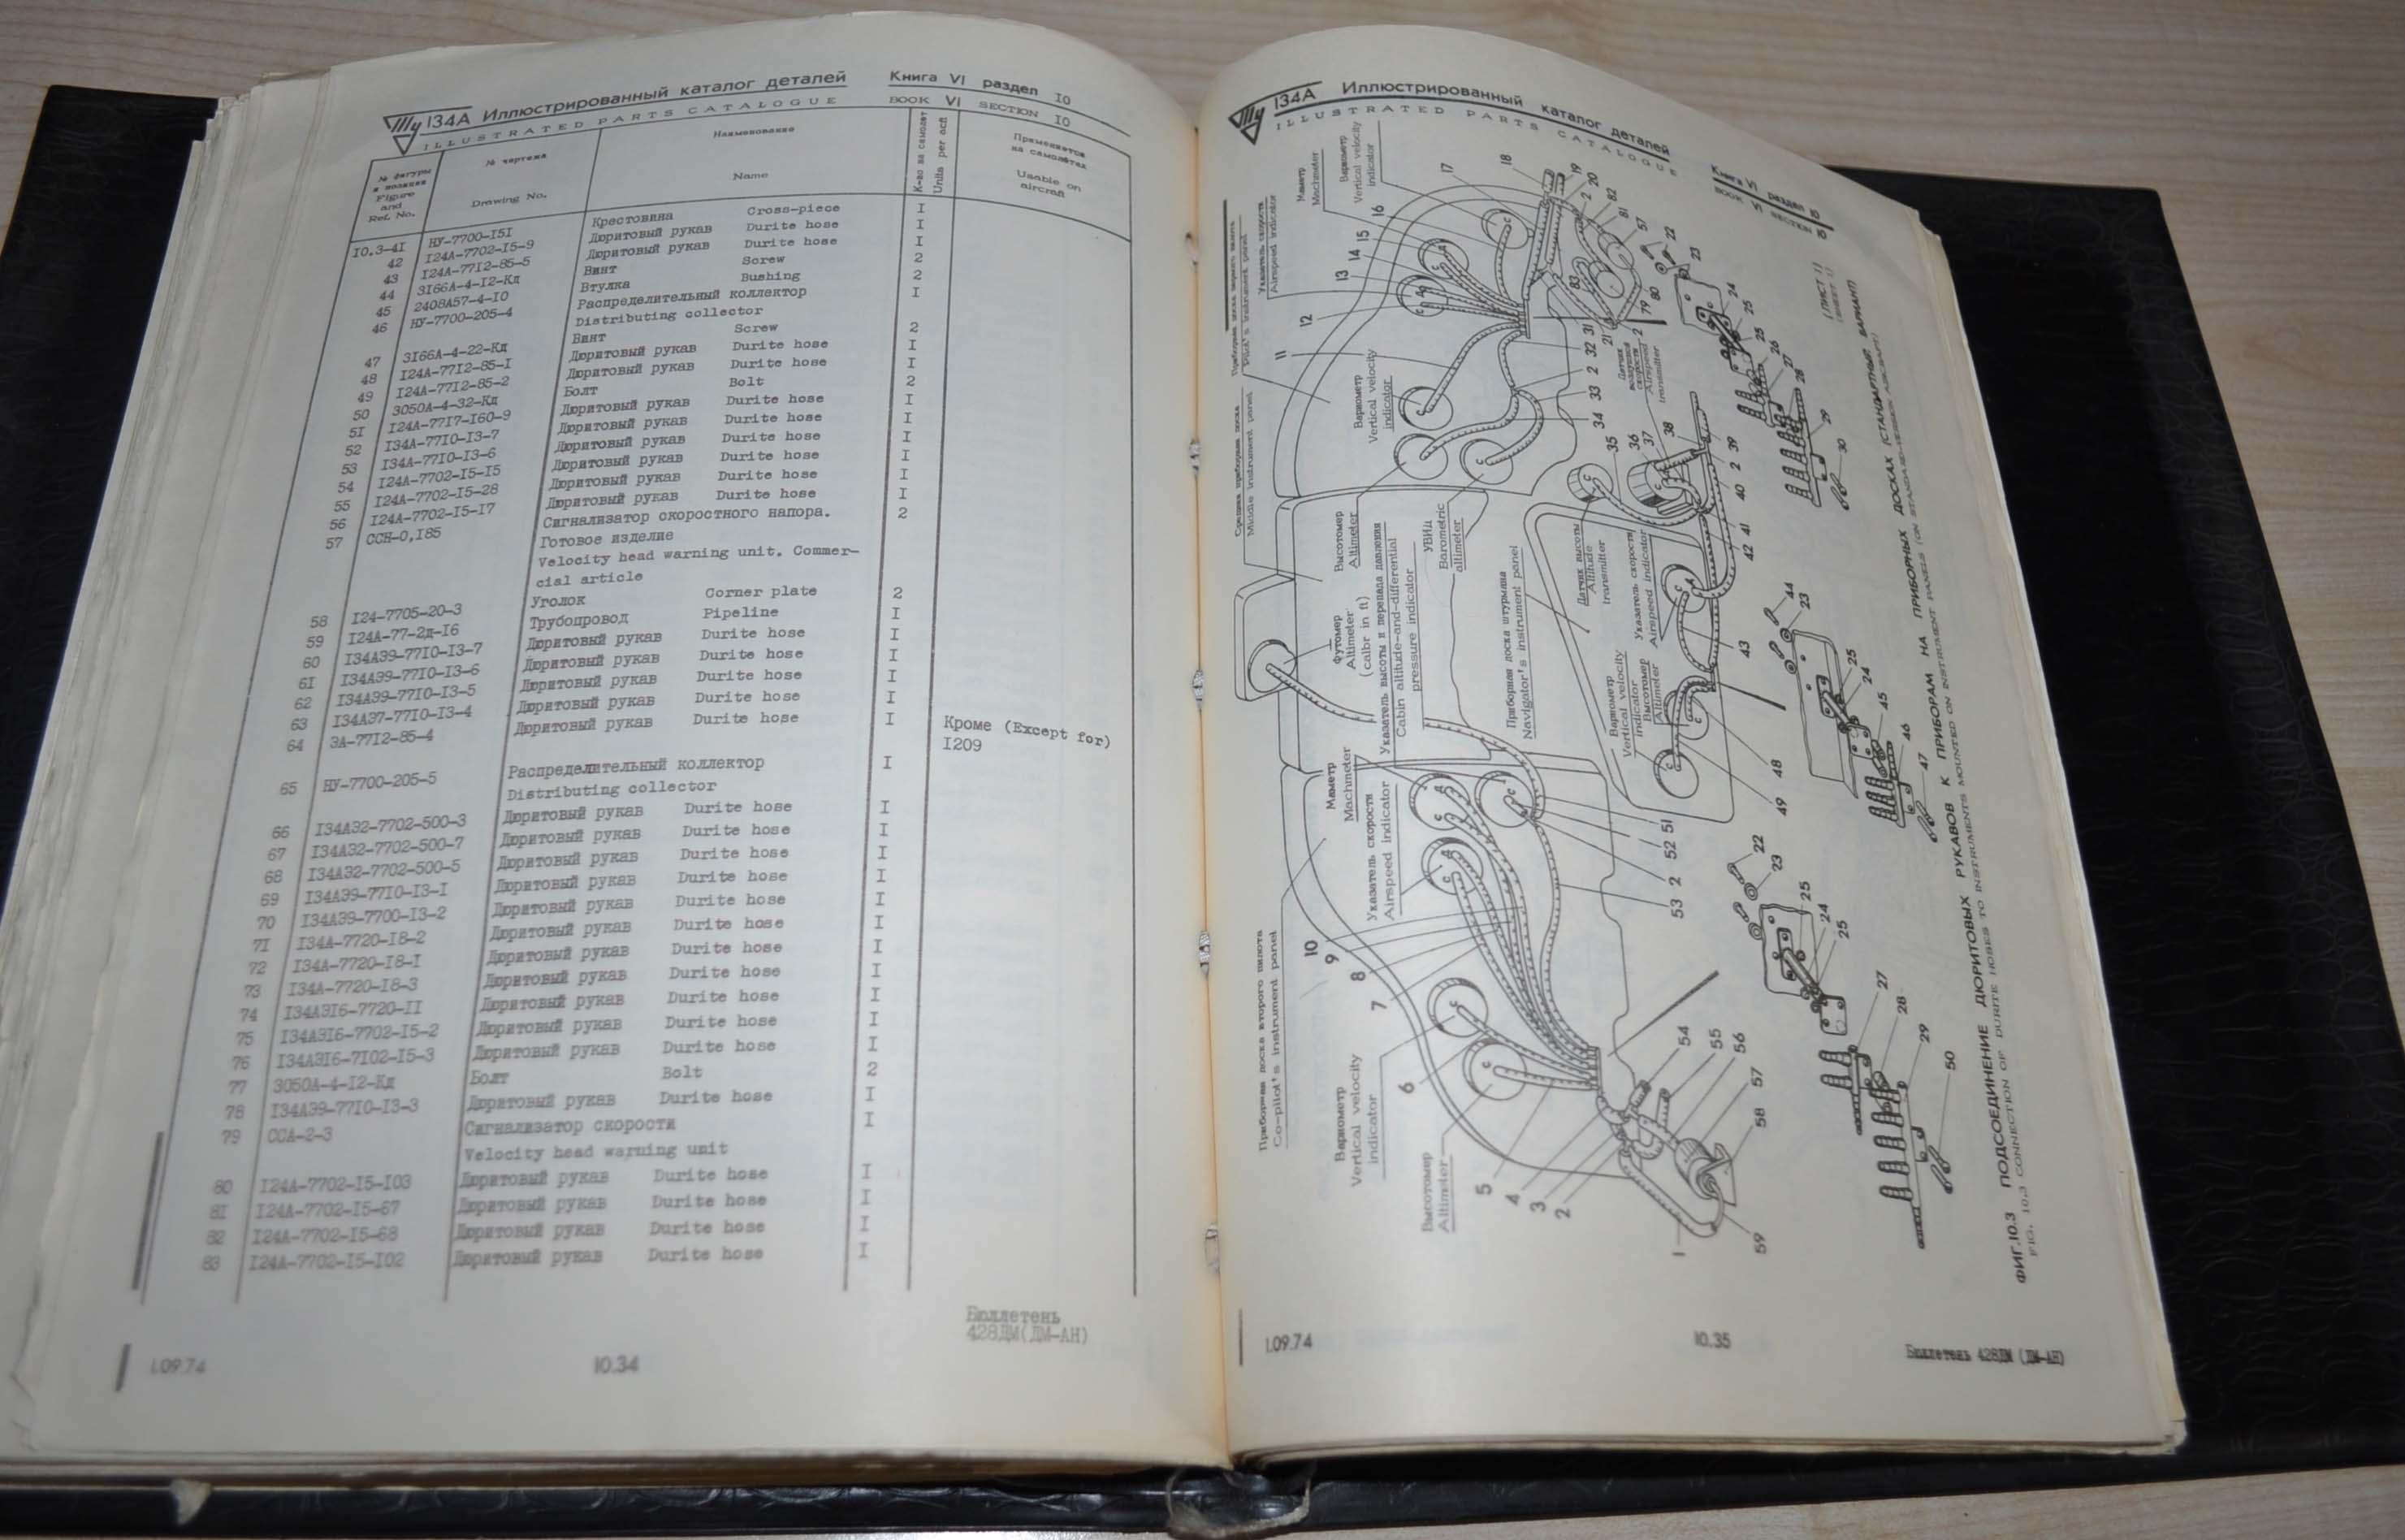 Ту 134А Иллюстрированный каталог деталей Книга VI раздел 10
ILLUSTRATED PARTS CATALOGUE BOOK VI SECTION 10
№ фигуры и позиции Figure and Ref. No. № чертежа Drawing No. Наименование Name К-во на самолет Units per acft Применяется на самолётах Usable on aircraft
I0.3-4I НУ-7700-I5I Крестовина Cross-piece I
42 I24А-7702-I5-9 Дюритовый рукав Durite hose I
43 I24А-77I2-85-5 Дюритовый рукав Durite hose I
44 3I66А-4-I2-Кд Винт Screw 2
45 2408А57-4-I0 Втулка Bushing 2
46 НУ-7700-205-4 Распределительный коллектор I
Distributing collector
47 3I66А-4-22-Кд Винт Screw 2
48 I24А-77I2-85-I Дюритовый рукав Durite hose I
49 I24А-77I2-85-2 Дюритовый рукав Durite hose I
50 3050А-4-32-Кд Болт Bolt 2
5I I24А-77I7-I60-9 Дюритовый рукав Durite hose I
52 I34А-77I0-I3-7 Дюритовый рукав Durite hose I
53 I34А-77I0-I3-6 Дюритовый рукав Durite hose I
54 I24А-7702-I5-I5 Дюритовый рукав Durite hose I
55 I24А-7702-I5-28 Дюритовый рукав Durite hose I
56 I24А-7702-I5-I7 Дюритовый рукав Durite hose I
57 ССН-0,I85 Сигнализатор скоростного напора. 2
Готовое изделие
Velocity head warning unit. Commer-
cial article
58 I24-7705-20-3 Уголок Corner plate 2
59 I24А-77-2д-I6 Трубопровод Pipeline I
60 I34АЭ9-77I0-I3-7 Дюритовый рукав Durite hose I
6I I34АЭ9-77I0-I3-6 Дюритовый рукав Durite hose I
62 I34АЭ9-77I0-I3-5 Дюритовый рукав Durite hose I
63 I34АЭ7-77I0-I3-4 Дюритовый рукав Durite hose I
64 ЭА-77I2-85-4 Дюритовый рукав Durite hose I Кроме (Except for)
I209
65 НУ-7700-205-5 Распределительный коллектор I
Distributing collector
66 I34АЭ2-7702-500-3 Дюритовый рукав Durite hose I
67 I34АЭ2-7702-500-7 Дюритовый рукав Durite hose I
68 I34АЭ2-7702-500-5 Дюритовый рукав Durite hose I
69 I34АЭ9-77I0-I3-I Дюритовый рукав Durite hose I
70 I34АЭ9-7700-I3-2 Дюритовый рукав Durite hose I
7I I34А-7720-I8-2 Дюритовый рукав Durite hose I
72 I34А-7720-I8-I Дюритовый рукав Durite hose I
73 I34А-7720-I8-3 Дюритовый рукав Durite hose I
74 I34АЭI6-7720-II Дюритовый рукав Durite hose I
75 I34АЭI6-7702-I5-2 Дюритовый рукав Durite hose I
76 I34АЭI6-7I02-I5-3 Дюритовый рукав Durite hose I
77 3050А-4-I2-Кд Болт Bolt 2
78 I34АЭ9-77I0-I3-3 Дюритовый рукав Durite hose I
79 ССА-2-3 Сигнализатор скорости I
Velocity head warning unit
80 I24А-7702-I5-I03 Дюритовый рукав Durite hose I
8I I24А-7702-I5-67 Дюритовый рукав Durite hose I
82 I24А-7702-I5-68 Дюритовый рукав Durite hose I
83 I24А-7702-I5-I02 Дюритовый рукав Durite hose I
Бюллетень
428ДМ(ДМ-АН)
1.09.74 10.34
Ту 134А Иллюстрированный каталог деталей Книга VI раздел 10
ILLUSTRATED PARTS CATALOGUE BOOK VI SECTION 10
Приборная доска второго пилота
Co-pilot's instrument panel
Средняя приборная доска
Middle instrument panel
Pilot's instrument panel
Указатель скорости
Airspeed indicator
Махметр
Machmeter
Вариометр
Vertical velocity
indicator
12 13 14 15 16 17 18 19 20 2 82 81 57 22 23
11
Вариометр
Vertical velocity
indicator
83 79 80 24 25 25 26 27 28 29 30
34 33 2 32 31 21 2
Датчик
воздушной
скорости
Airspeed
transmitter
35 36 37 38 39 2 40 41 42
Высотомер
Altimeter
Футомер
Altimeter
(calbr in ft)
Указатель высоты и перепада давления
Cabin altitude-and-differential
pressure indicator
УВИД
Barometric
altimeter
Приборная доска штурмана
Navigator's instrument panel
Датчик высоты
Altitude
transmitter
Указатель скорости
Airspeed indicator
Вариометр
Vertical velocity
indicator
Высотомер
Altimeter
43 44 23 25 24 45 46 47 48 49
Махметр
Machmeter
Указатель скорости
Airspeed indicator
10 9 8 7 53 2 52 51 22 23 25 24 25
Вариометр
Vertical velocity
indicator
6
Высотомер
Altimeter
5 4 3 2 1 54 55 56 57 58 59 27 28 29 50
(ЛИСТ 1)
(SHEET 1)
ФИГ.10.3 ПОДСОЕДИНЕНИЕ ДЮРИТОВЫХ РУКАВОВ К ПРИБОРАМ НА ПРИБОРНЫХ ДОСКАХ (СТАНДАРТНЫЙ ВАРИАНТ)
FIG. 10.3 CONNECTION OF DURITE HOSES TO INSTRUMENTS MOUNTED ON INSTRUMENT PANELS (ON STANDARD-VERSION AIRCRAFT)
1.09.74 10.35 Бюллетень 428ДМ (ДМ-АН)